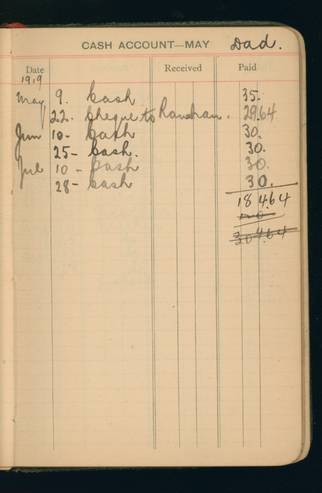 CASH ACCOUNT—MAY Dad.
Date Received Paid
1919
May 9. Cash 35.
22. Cheque to 29.64
Jun 10- Cash 30.
25- Cash. 30.
Jul 10- Cash 30.
28- Cash 30.
184.64
304.64